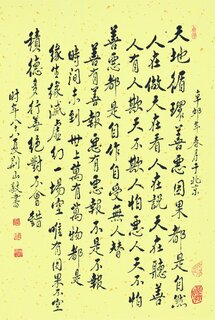 辛卯年春月于北京
天地循環善惡因果都是自然
人在做天在看人在說天在聽善
人有人欺天不欺人怕惡人天不怕
善惡都是自作自受無人替
善有善報惡有惡報不是不報
時間未到世上萬有萬物都是
緣生緣滅幻一場空唯有因果不空
積德多行善絕對不會錯
时年八十八叟荆山敬書